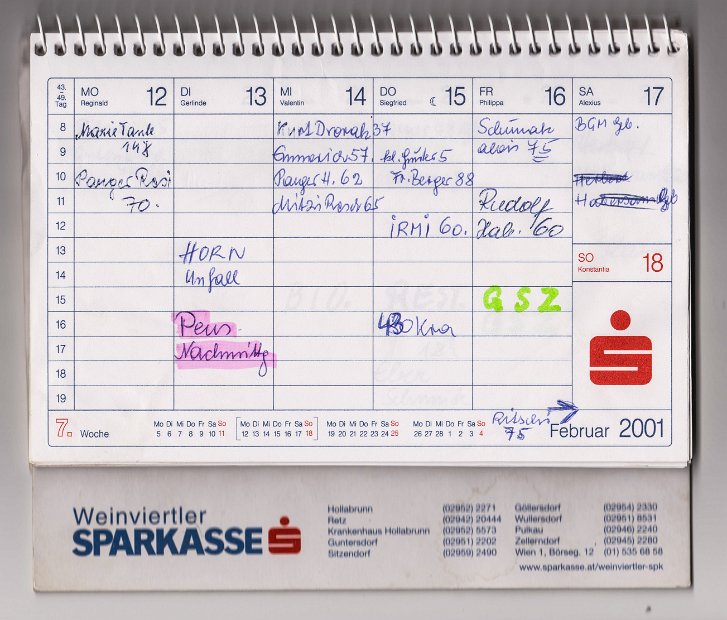 43. – 49. Tag
MO 12 Reginald
DI 13 Gerlinde
MI 14 Valentin
DO 15 Siegfried
FR 16 Philippa
SA 17 Alexius
8 Marie Tante Kurt Dvorak 37 Schumak BGM Gb.
148
9 Emmerich 57. 5 alois 75
10 Panger Resi Panger H. 62 Fr. Berger 88
11 70. Mitzi Resch 65 Rudolf
12 iRMi 60. Hab. 60
13 HORN
SO 18
Konstantia
14 Unfall
15 GSZ
16 Pens.
17 Nachmittg
18
19
7. Woche
Mo Di Mi Do Fr Sa So Mo Di Mi Do Fr Sa So Mo Di Mi Do Fr Sa So Mo Di Mi Do Fr Sa So
5 6 7 8 9 10 11 12 13 14 15 16 17 18 19 20 21 22 23 24 25 26 27 28 1 2 3 4
75
Februar 2001
Weinviertler
SPARKASSE
Hollabrunn (02952) 2271 Göllersdorf (02954) 2330
Retz (02942) 20444 Wullersdorf (02951) 8531
Krankenhaus Hollabrunn (02952) 5573 Pulkau (02946) 2240
Guntersdorf (02951) 2202 Zellerndorf (02945) 2280
Sitzendorf (02959) 2490 Wien 1, Börseg. 12 (01) 535 68 58
www.sparkasse.at/weinviertler-spk